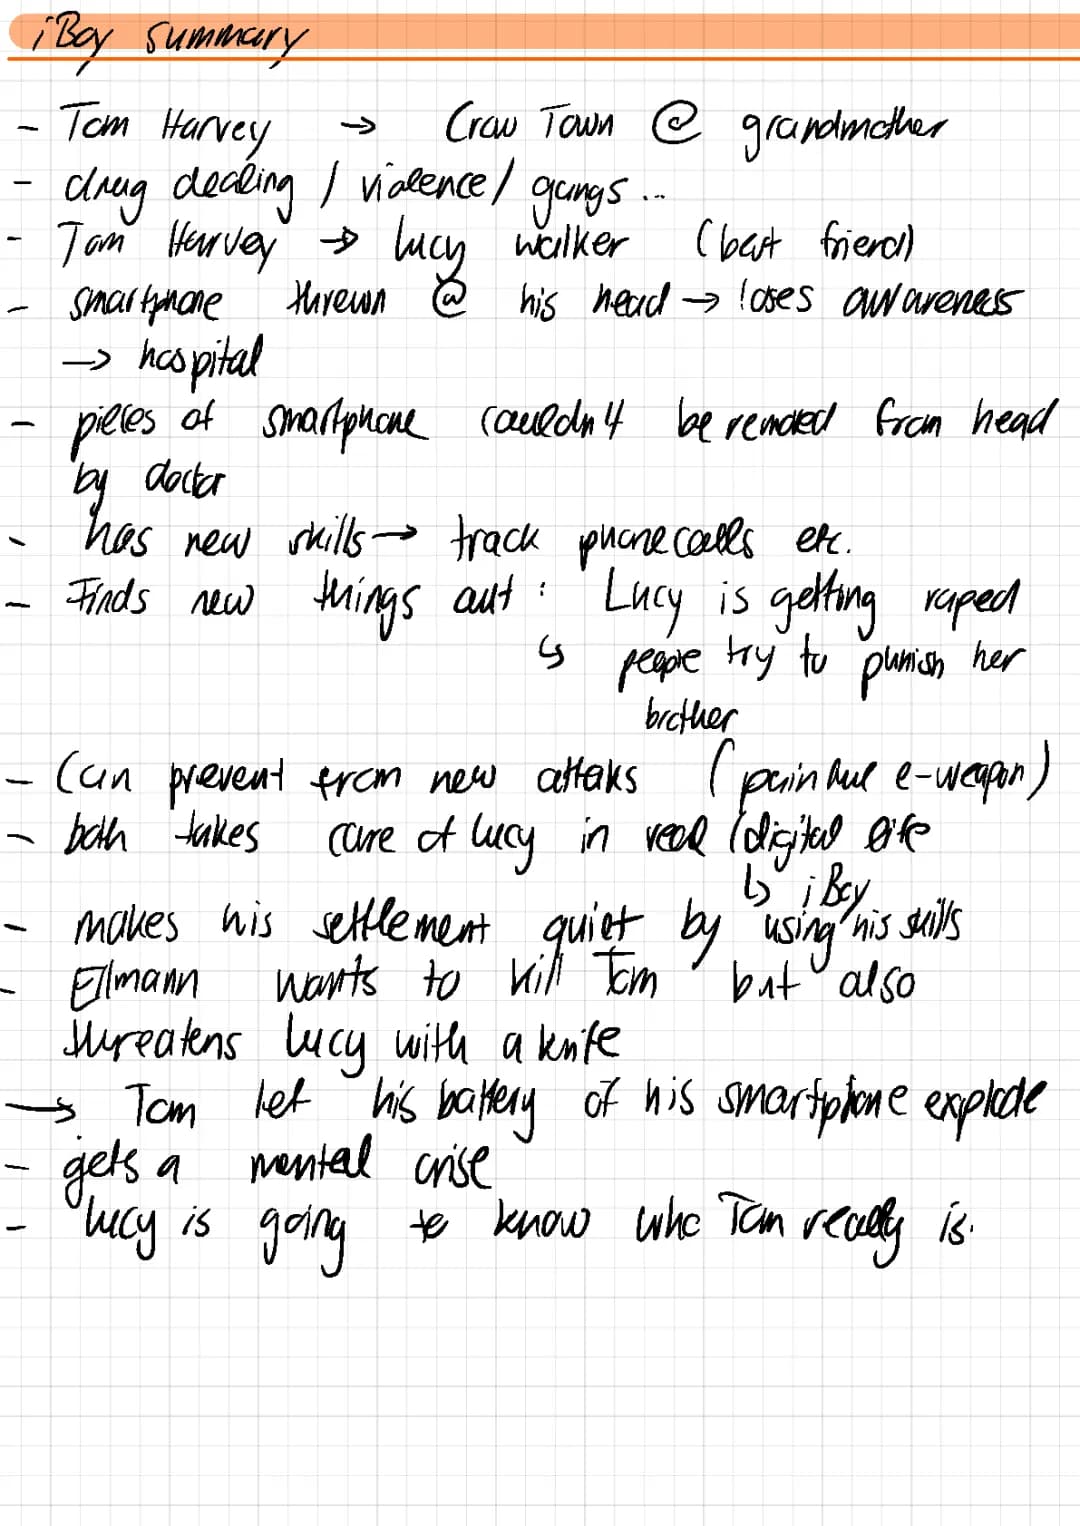 iBoy summary
- Tom Harvey → Crow Town @ grandmother
- drug dealing / violence / gangs ...
- Tom Harvey → lucy walker (best friend)
- smartphone threwn @ his head → loses awareness
→ hospital
- pieces of smartphone couldn't be removed from head
by doctor
- has new skills → track phone calls etc.
- Finds new things out : Lucy is getting raped
↳ people try to punish her
brother
- Can prevent from new attaks (painful e-weapon)
- both takes care of lucy in real / digital life
↳ iBoy
- makes his settlement quiet by using his skills
- Ellmann wants to kill Tom but also
threatens lucy with a knife
→ Tom let his battery of his smartphone explode
- gets a mental crise
- lucy is going to know who Tom really is.